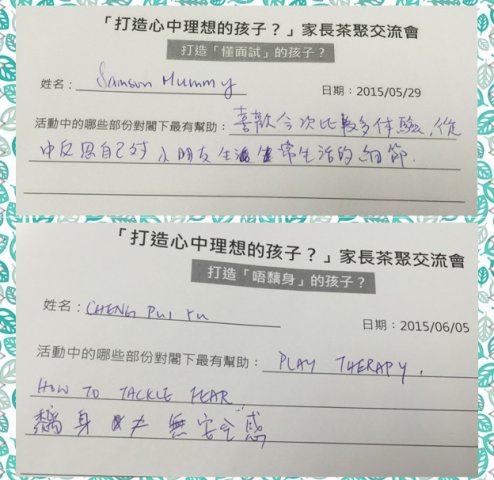 「打造心中理想的孩子？」家長茶聚交流會
打造「僅面試」的孩子？
姓名： Samson Mummy
日期：2015/05/29
活動中的哪些部份對閣下最有幫助： 喜歡今次比較多体驗，從
中反思自己對小朋友生活 常生活的細節.
「打造心中理想的孩子？」家長茶聚交流會
打造「唔黐身」的孩子？
姓名： CHENG PUI YU
日期：2015/06/05
活動中的哪些部份對閣下最有幫助： PLAY THERAPY,
HOW TO TACKLE FEAR
黐身 ≠ 無安全感